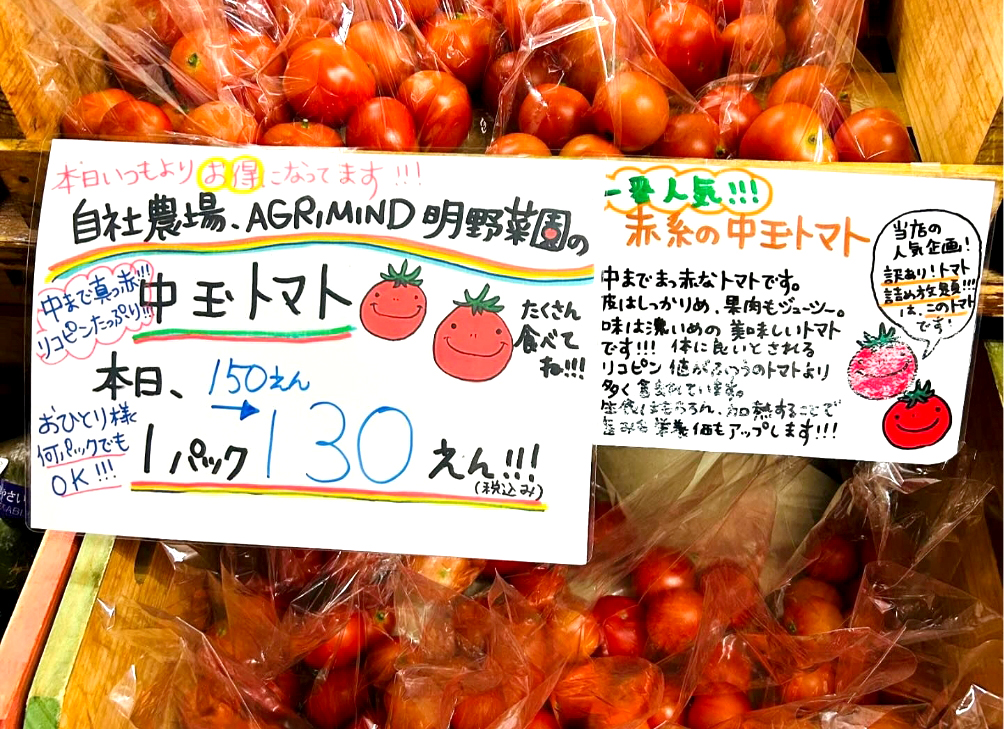 本日いつもよりお得になってます!!!
自社農場、AGRiMiND 明野菜園の
中まで真っ赤!!!
リコピンたっぷり!!!
中玉トマト
たくさん
食べて
ね!!!
本日、150えん
→
1パック130えん!!!
(税込み)
おひとり様
何パックでも
OK!!!
一番人気!!!
赤系の中玉トマト
中までまっ赤なトマトです。
皮はしっかりめ、果肉もジューシー。
味は濃いめの美味しいトマト
です!!! 体に良いとされる
リコピン値がふつうのトマトより
多く含まれています。
生食はもちろん、加熱することで
栄養価もアップします!!!
当店の
人気企画!
訳あり!トマト
詰め放題!!!
は、このトマト
です!